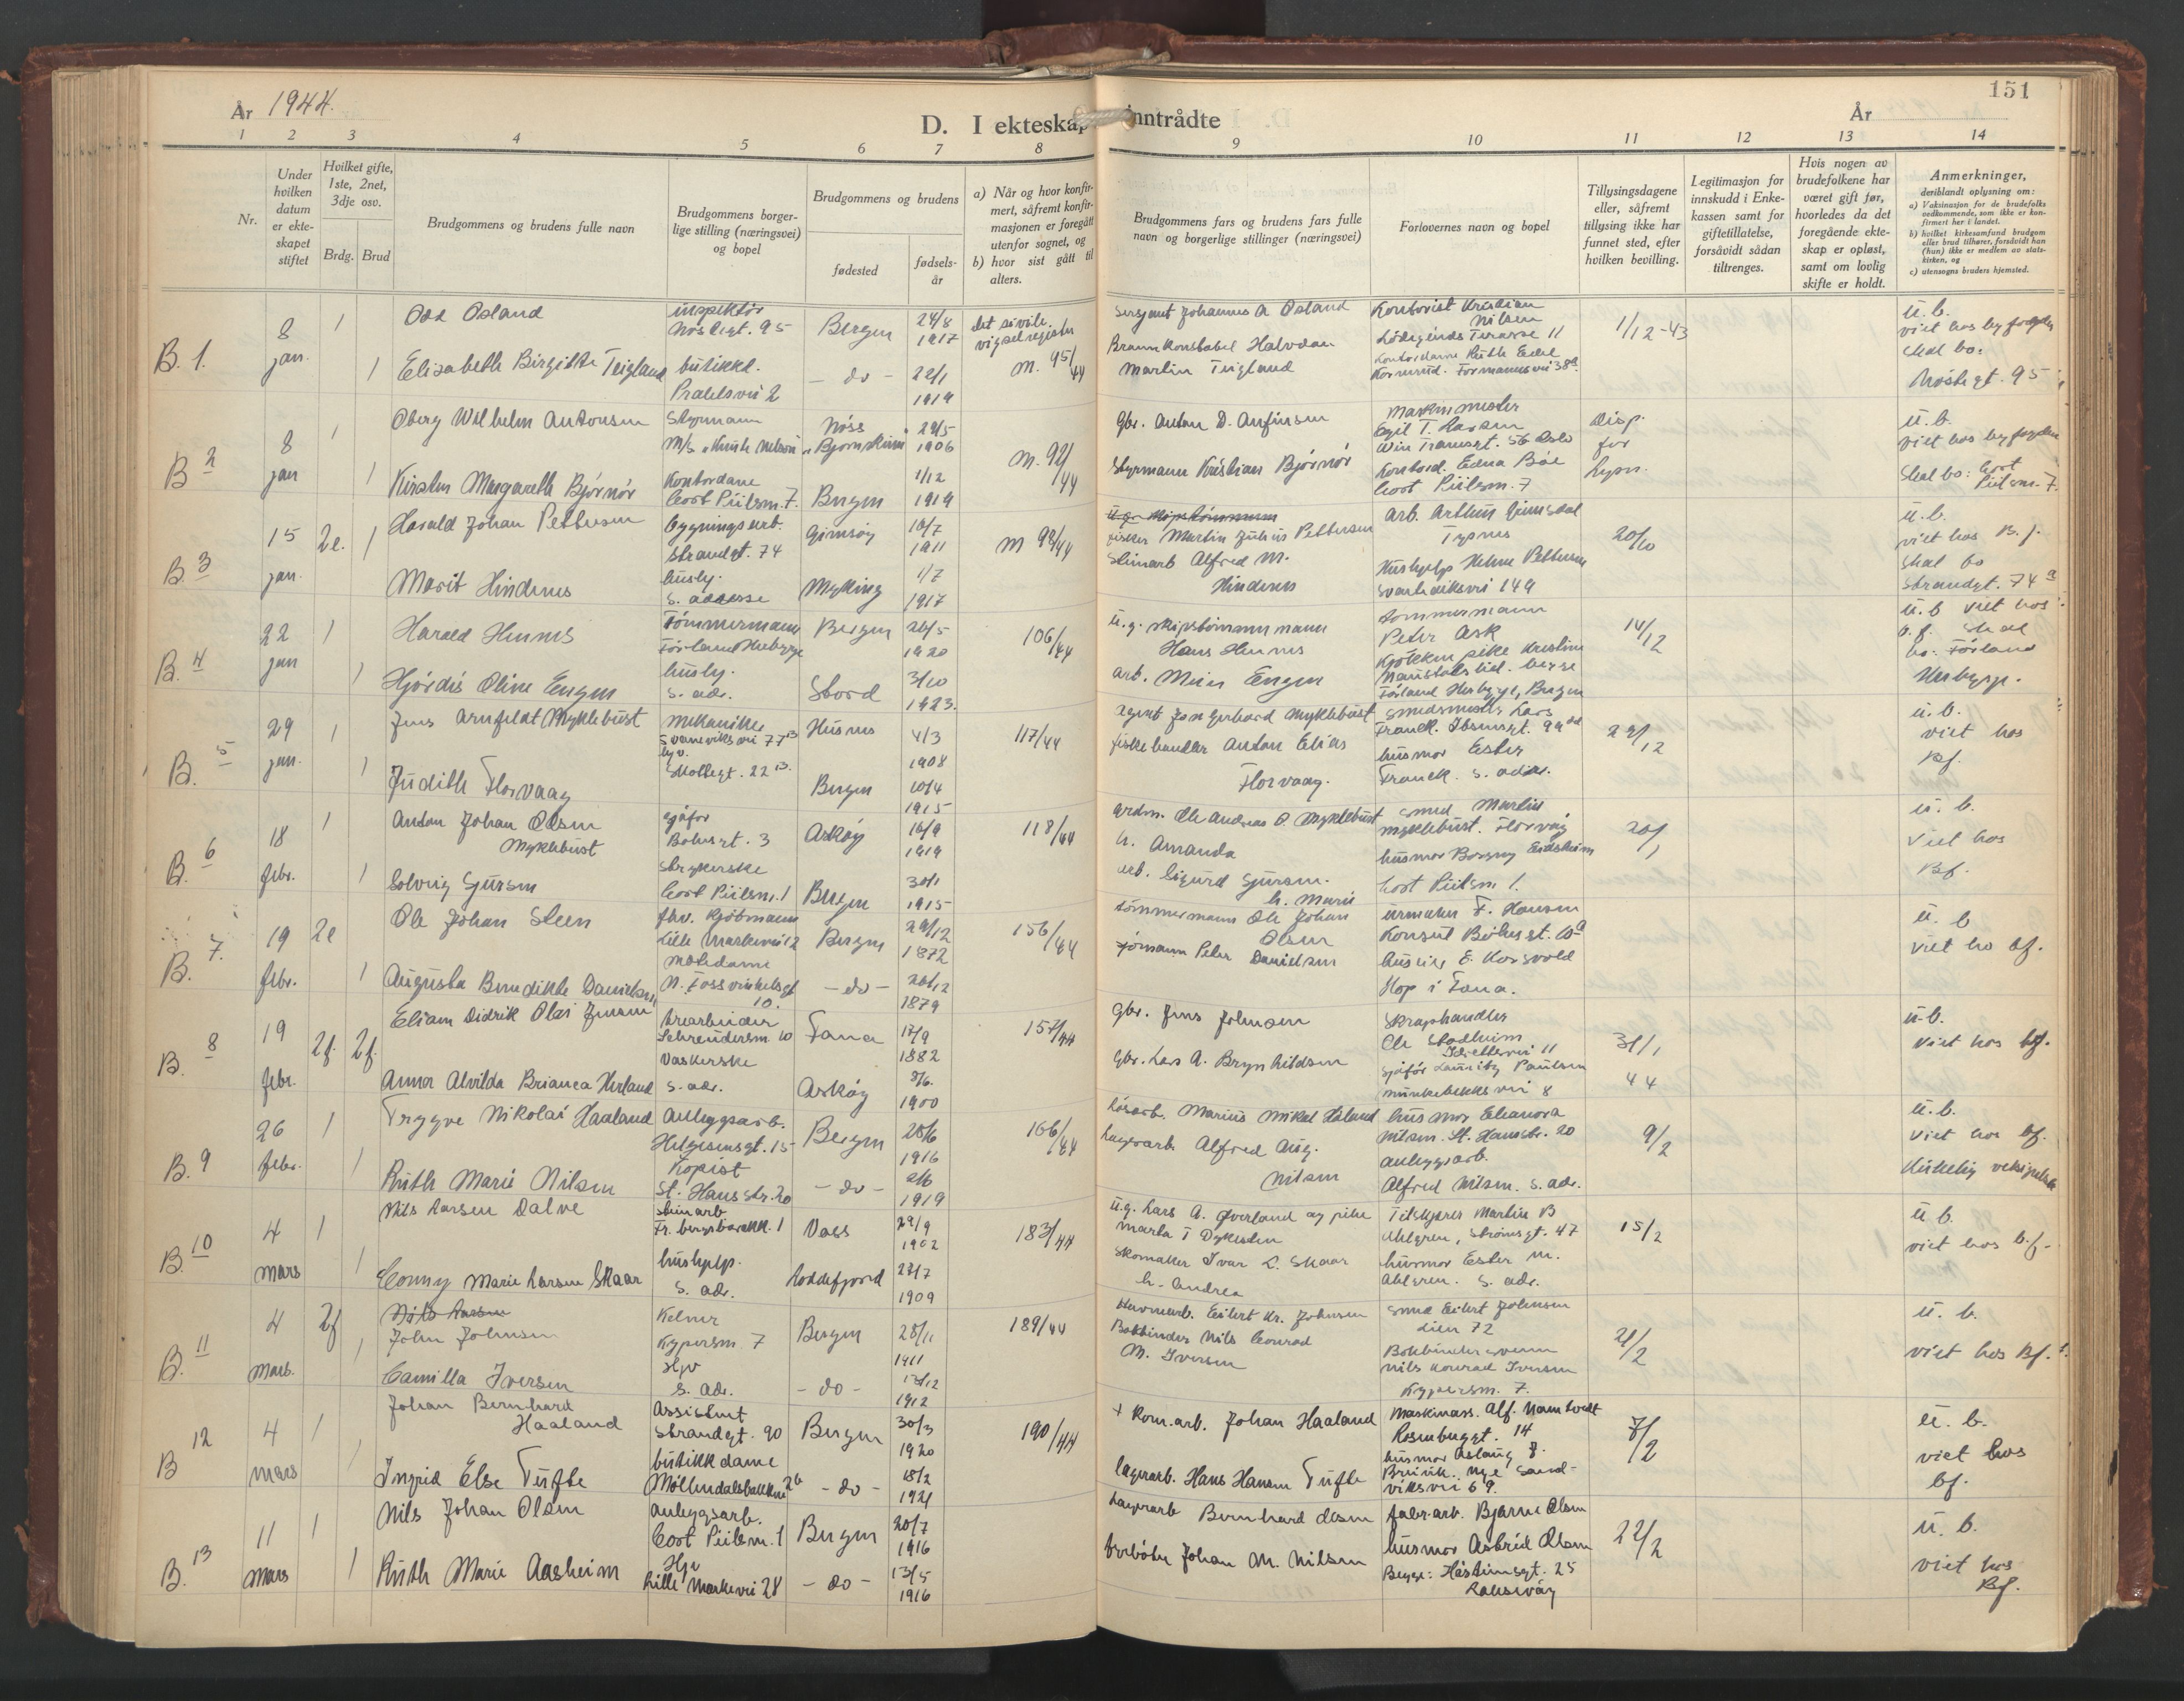 År 1944.
D. I ekteskap inntrådte
År
151
1 2 3 4 5 6 7 8 9 10 11 12 13 14
Nr.
Under hvilken datum er ekte-skapet stiftet
Hvilket gifte, 1ste, 2net, 3dje osv.
Brdg. Brud
Brudgommens og brudens fulle navn
Brudgommens borger-lige stilling (næringsvei) og bopel
Brudgommens og brudens
fødested
fødsels-år
a) Når og hvor konfir-mert, såfremt konfir-masjonen er foregått utenfor sognet, og
b) hvor sist gått til alters.
Brudgommens fars og brudens fars fulle navn og borgerlige stillinger (næringsvei)
Forlovernes navn og bopel
Tillysingsdagene eller, såfremt tillysing ikke har funnet sted, efter hvilken bevilling.
Legitimasjon for innskudd i Enke-kassen samt for giftetillatelse, forsåvidt sådan tiltrenges.
Hvis nogen av brudefolkene har været gift før, hvorledes da det foregående ekte-skap er opløst, samt om lovlig skifte er holdt.
Anmerkninger,
deriblandt oplysning om:
a) Vaksinasjon for de brudefolks vedkommende, som ikke er kon-firmert her i landet.
b) hvilket kirkesamfund brudgom eller brud tilhører, forsåvidt han (hun) ikke er medlem av stats-kirken, og
c) utensogns bruders hjemsted.
B. 1. 8 jan. 1 Odd Osland inspektør Nøstegt. 95 Bergen 24/8 1917 det sivile vigselregister
Sersjant Johannes A Osland Kontorist Kristian Nilsen 1/12-43 u. b. viet hos byfogden
1 Elisabeth Birgitte Teigland butikkd. 2 - do - 22/1 1919 M. 95/44
Brannkonstabel Halvdan Martin Teigland Kontordame Ruth skal bo: Nøstegt. 95
B 2 8 jan 1 Oberg Wilhelm Antonsen Styrmann 29/5 1906 M. 92/44
Gbr. Anton D. Anfinsen Maskinmester Egil T. 56 Oslo Disp. for lysn. u. b. viet hos byfogden
1 Kirsten Margareth Bjørnør Kontordame Cort Piilsm. 7. Bergen 1/12 1919
Styrmann Kristian Bjørnør Kontord. Edna Bøe Cort Piilsm. 7 skal bo: Cort Piilsm. 7.
B. 3 15 jan. 2e. 1 Harald Johan Pettersen bygningsarb. Strandgt. 74 Gimsøy 10/7 1911 M 98/44
fisker Martin Julius Pettersen arb. Arthur 20/10 u. b. viet hos B. f.
Marit Hindenes husly. s. adresse Myking 1/7 1917
Alfred M. Hindenes Hushjelp Helene Pettersen Svartediksvei 149 skal bo Strandgt. 74 a
B. 4 22 jan 1 Harald Hennes Tømmermann Bergen 26/5 1920 106/44
u. g. skipstømmermann Hans Hennes tømmermann Peter Ask 14/12 u. b viet hos b. f. skal bo: Førland Herbygge.
1 Hjørdis Oline Engen husly. s. adr. Stord 3/10 1923.
arb. Engen Kjøkkenpike Kristine begge Førland Herbygge, Bergen
B. 5 29 jan. 1 Jens Arnfeldt Myklebust mekaniker Svaneviksvei 77 B Husnes 4/3 1908 117/44
agent Jon Gerhard Myklebust smedmester Lars Franck. Ibsensgt. 99 29/12 u. b. viet hos Bf.
1 Judith Florvaag hgv. Skottegt. 22 B. Bergen 10/4 1915
fiskehandler Anton Elias Florvaag. husmor Ester Franck. s. adr.
B. 6 18 febr. 1 Anton Johan Olsen Myklebust sjåfør Bøhmsgt. 3 Askøy 16/9 1919 118/44
grdm. Ole Andreas O. Myklebust h. Amanda smed Martin Myklebust. Florvåg 20/1 u. b. Viet hos Bf.
1 Solveig Sjursen Strykerske Cort Piilsm. 1 Bergen 30/1 1915
arb. Sigurd Sjursen. h. Marie husmor Borgny Cort Piilsm 1.
B. 7. 19 febr. 2e Ole Johan Steen fhv. kjøbmann Lille Markevei 2 Bergen 29/12 1872 156/44
tømmermann Ole Johan Olsen urmaker F. Hansen u. b viet hos bf.
1 Augusta Benedikte Danielsen motedame N. Fossvinkelsgt 10. - do - 20/12 1879
Peter Danielsen E. Korsvold Hop i Fana.
B. 8 19 febr. 2f. 2f. Eliam Didrik Olai Jensen Schrøudersm. 10 Fana 17/9 1882 157/44
gbr. Jens Johnsen Skraphandler Ole Stadheim 31/1 44 u. b. viet hos bf.
Anna Alvilda Brianca Herland Vaskerske s. adr. Askøy 3/6. 1900
gbr. Lars A. Brynhildsen sjåfør Paulsen Munkebekksvei 8
B. 9 26 febr. 1 Trygve Nikolai Haaland anleggsarb. Helgesensgt. 15 Bergen 28/6 1916 166/44
Marius Mikal Håland husmor Eleanora Nilsen. St. Hansstr. 20 9/2 u. b. viet hos bf.
1 Ruth Marie Nilsen Kopist St. Hansstr. 20 - do - 2/6 1919
Lagerarb. Alfred Aug. Nilsen anleggsarb. Alfred Nilsen. s. adr. Kirkelig velsignelse
B. 10 4 mars 1 Nils Larsen Dalve Voss 29/9 1902 183/44
u. g. Lars A. Øverland og pike Marta T Dykesten Martin B Ahlgren, Strømsgt. 47 15/2 u b. viet hos b. f.
1 Conny Marie Larsen Skaar hushjelp. s. adr. Loddefjord 28/7 1909
Skomaker Ivar L. Skaar h. Andrea husmor Ester M. Ahlgren. s. adr.
B. 11 4 mars. 2f Nils Larsen
John Johnsen Kelner Kypersm. 7 Bergen 28/11 1911 189/44
Havnearb. Eilert Kr. Johnsen smed Eilert Johnsen Lien 72 21/2 u. b. viet hos Bf.
1 Camilla Iversen Hgv s. adr. - do - 1912
Bokbinder Nils Conrad M. Iversen Bokbindersvenn Nils Konrad Iversen Kypersm. 7.
B 12 4 mars 1 Johan Bernhard Haaland Assistent Strandgt. 90 Bergen 30/3 1920 190/44
+ Kom. arb. Johan Haaland Maskinass. Alf. Namtvedt Rosenbergsgt. 14 7/2 u. b. viet hos bf.
1 Ingrid Else Tufte butikkdame Møllendalsbakken 26 - do - 18/2 1921
lagerarb. Hans Hansen Tufte husmor Aslaug nye Sand-viksvei 69.
B. 13 11 mars 1 Nils Johan Olsen anleggsarb. Cort Piilsm. 1 Bergen 20/7 1916
Lagerarb Bernhard Olsen fabr. arb. Bjarne Olsen 22/2 u. b. viet hos Bf.
1 Ruth Marie Aasheim Hgv Lille Markevei 28 - do - 13/5 1916
Johan M. Nilsen husmor Astrid Olsen Begge: 25 Laksevåg